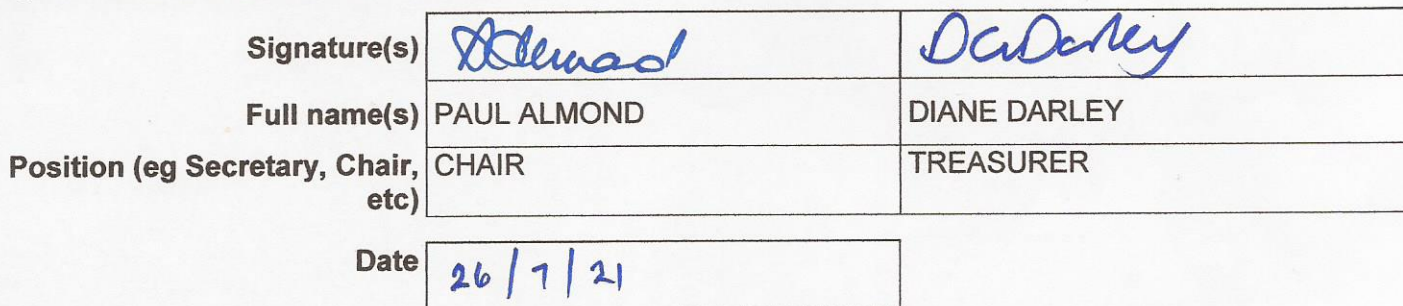 Signature(s) DCDarley
Full name(s) PAUL ALMOND DIANE DARLEY
Position (eg Secretary, Chair, CHAIR TREASURER
etc)
Date 26/7/21